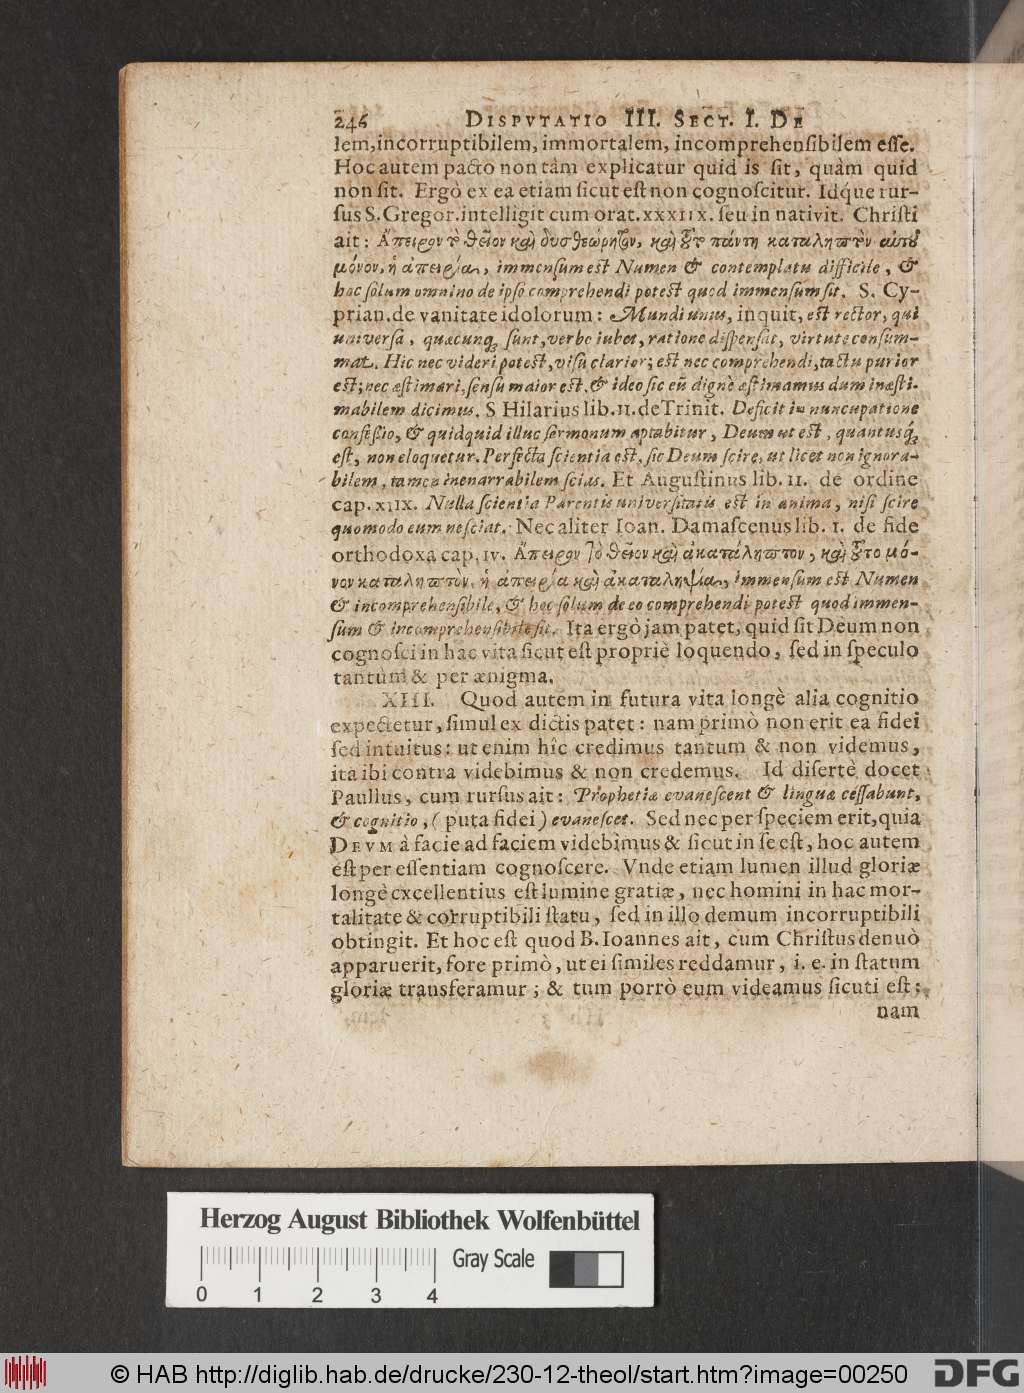 246 DISPVTATIO III. SECT. I. DE
lem, incorruptibilem, immortalem, incomprehensibilem esse.
Hoc autem pacto non tàm explicatur quid is ſit, quàm quid
non ſit. Ergò ex ea etiam ſicut eſt non cognoſcitur. Idq́ue rur-
ſus S. Gregor. intelligit cum orat. XXXIIX. ſeu in nativit. Chriſti
ait: Ἄπειρον τὸ θεῖον καὶ δυσθεώρητον, καὶ τοῦτο πάντη καταληπτὸν αὐτοῦ
μόνον, ἡ ἀπειρία, immenſum eſt Numen & contemplatu difficile, &
hoc ſolum omnino de ipſo comprehendi poteſt quod immenſum ſit. S. Cy-
prian. de vanitate idolorum: Mundi unus, inquit, eſt rector, qui
univerſa, quæcunq; ſunt, verbo iubet, ratione diſpenſat, virtute conſum-
mat. Hic nec videri poteſt, viſu clarior; eſt nec comprehendi, tactu purior
eſt; nec æſtimari, ſenſu maior eſt, & ideo ſic eũ dignè æſtimamus dum inæſti-
mabilem dicimus. S Hilarius lib. II. de Trinit. Deficit in nuncupatione
confeſsio, & quidquid illuc ſermonum aptabitur, Deum ut eſt, quantusq́;
eſt, non eloquetur. Perfecta ſcientia eſt, ſic Deum ſcire, ut licet non ignora-
bilem, tamen inenarrabilem ſcias. Et Auguſtinus lib. II. de ordine
cap. XIIX. Nulla ſcientia Parentis univerſitatis eſt in anima, niſi ſcire
quomodo eum neſciat. Nec aliter Ioan. Damaſcenus lib. I. de fide
orthodoxa cap. IV. Ἄπειρον τὸ θεῖον καὶ ἀκατάληπτον, καὶ τοῦτο μό-
νον καταληπτὸν, ἡ ἀπειρία καὶ ἀκαταληψία, immenſum eſt Numen
& incomprehenſibile, & hoc ſolum de eo comprehendi poteſt quod immen-
ſum & incomprehenſibile ſit. Ita ergò jam patet, quid ſit Deum non
cognoſci in hac vita ſicut eſt propriè loquendo, ſed in ſpeculo
tantùm & per ænigma.
XIII. Quod autem in futura vita longè alia cognitio
expectetur, ſimul ex dictis patet: nam primò non erit ea fidei
ſed intuitus: ut enim hîc credimus tantum & non videmus,
ita ibi contra videbimus & non credemus. Id diſertè docet
Paullus, cum rurſus ait: Prophetiæ evaneſcent & linguæ ceſſabunt,
& cognitio, (puta fidei) evaneſcet. Sed nec per ſpeciem erit, quia
DEVM à facie ad faciem videbimus & ſicut in ſe eſt, hoc autem
eſt per eſſentiam cognoſcere. Vnde etiam lumen illud gloriæ
longè excellentius eſt lumine gratiæ, nec homini in hac mor-
talitate & corruptibili ſtatu, ſed in illo demum incorruptibili
obtingit. Et hoc eſt quod B. Ioannes ait, cum Chriſtus denuò
apparuerit, fore primò, ut ei ſimiles reddamur, i. e. in ſtatum
gloriæ transferamur; & tum porrò eum videamus ſicuti eſt:
nam
Herzog August Bibliothek Wolfenbüttel
Gray Scale
0 1 2 3 4
© HAB http://diglib.hab.de/drucke/230-12-theol/start.htm?image=00250
DFG